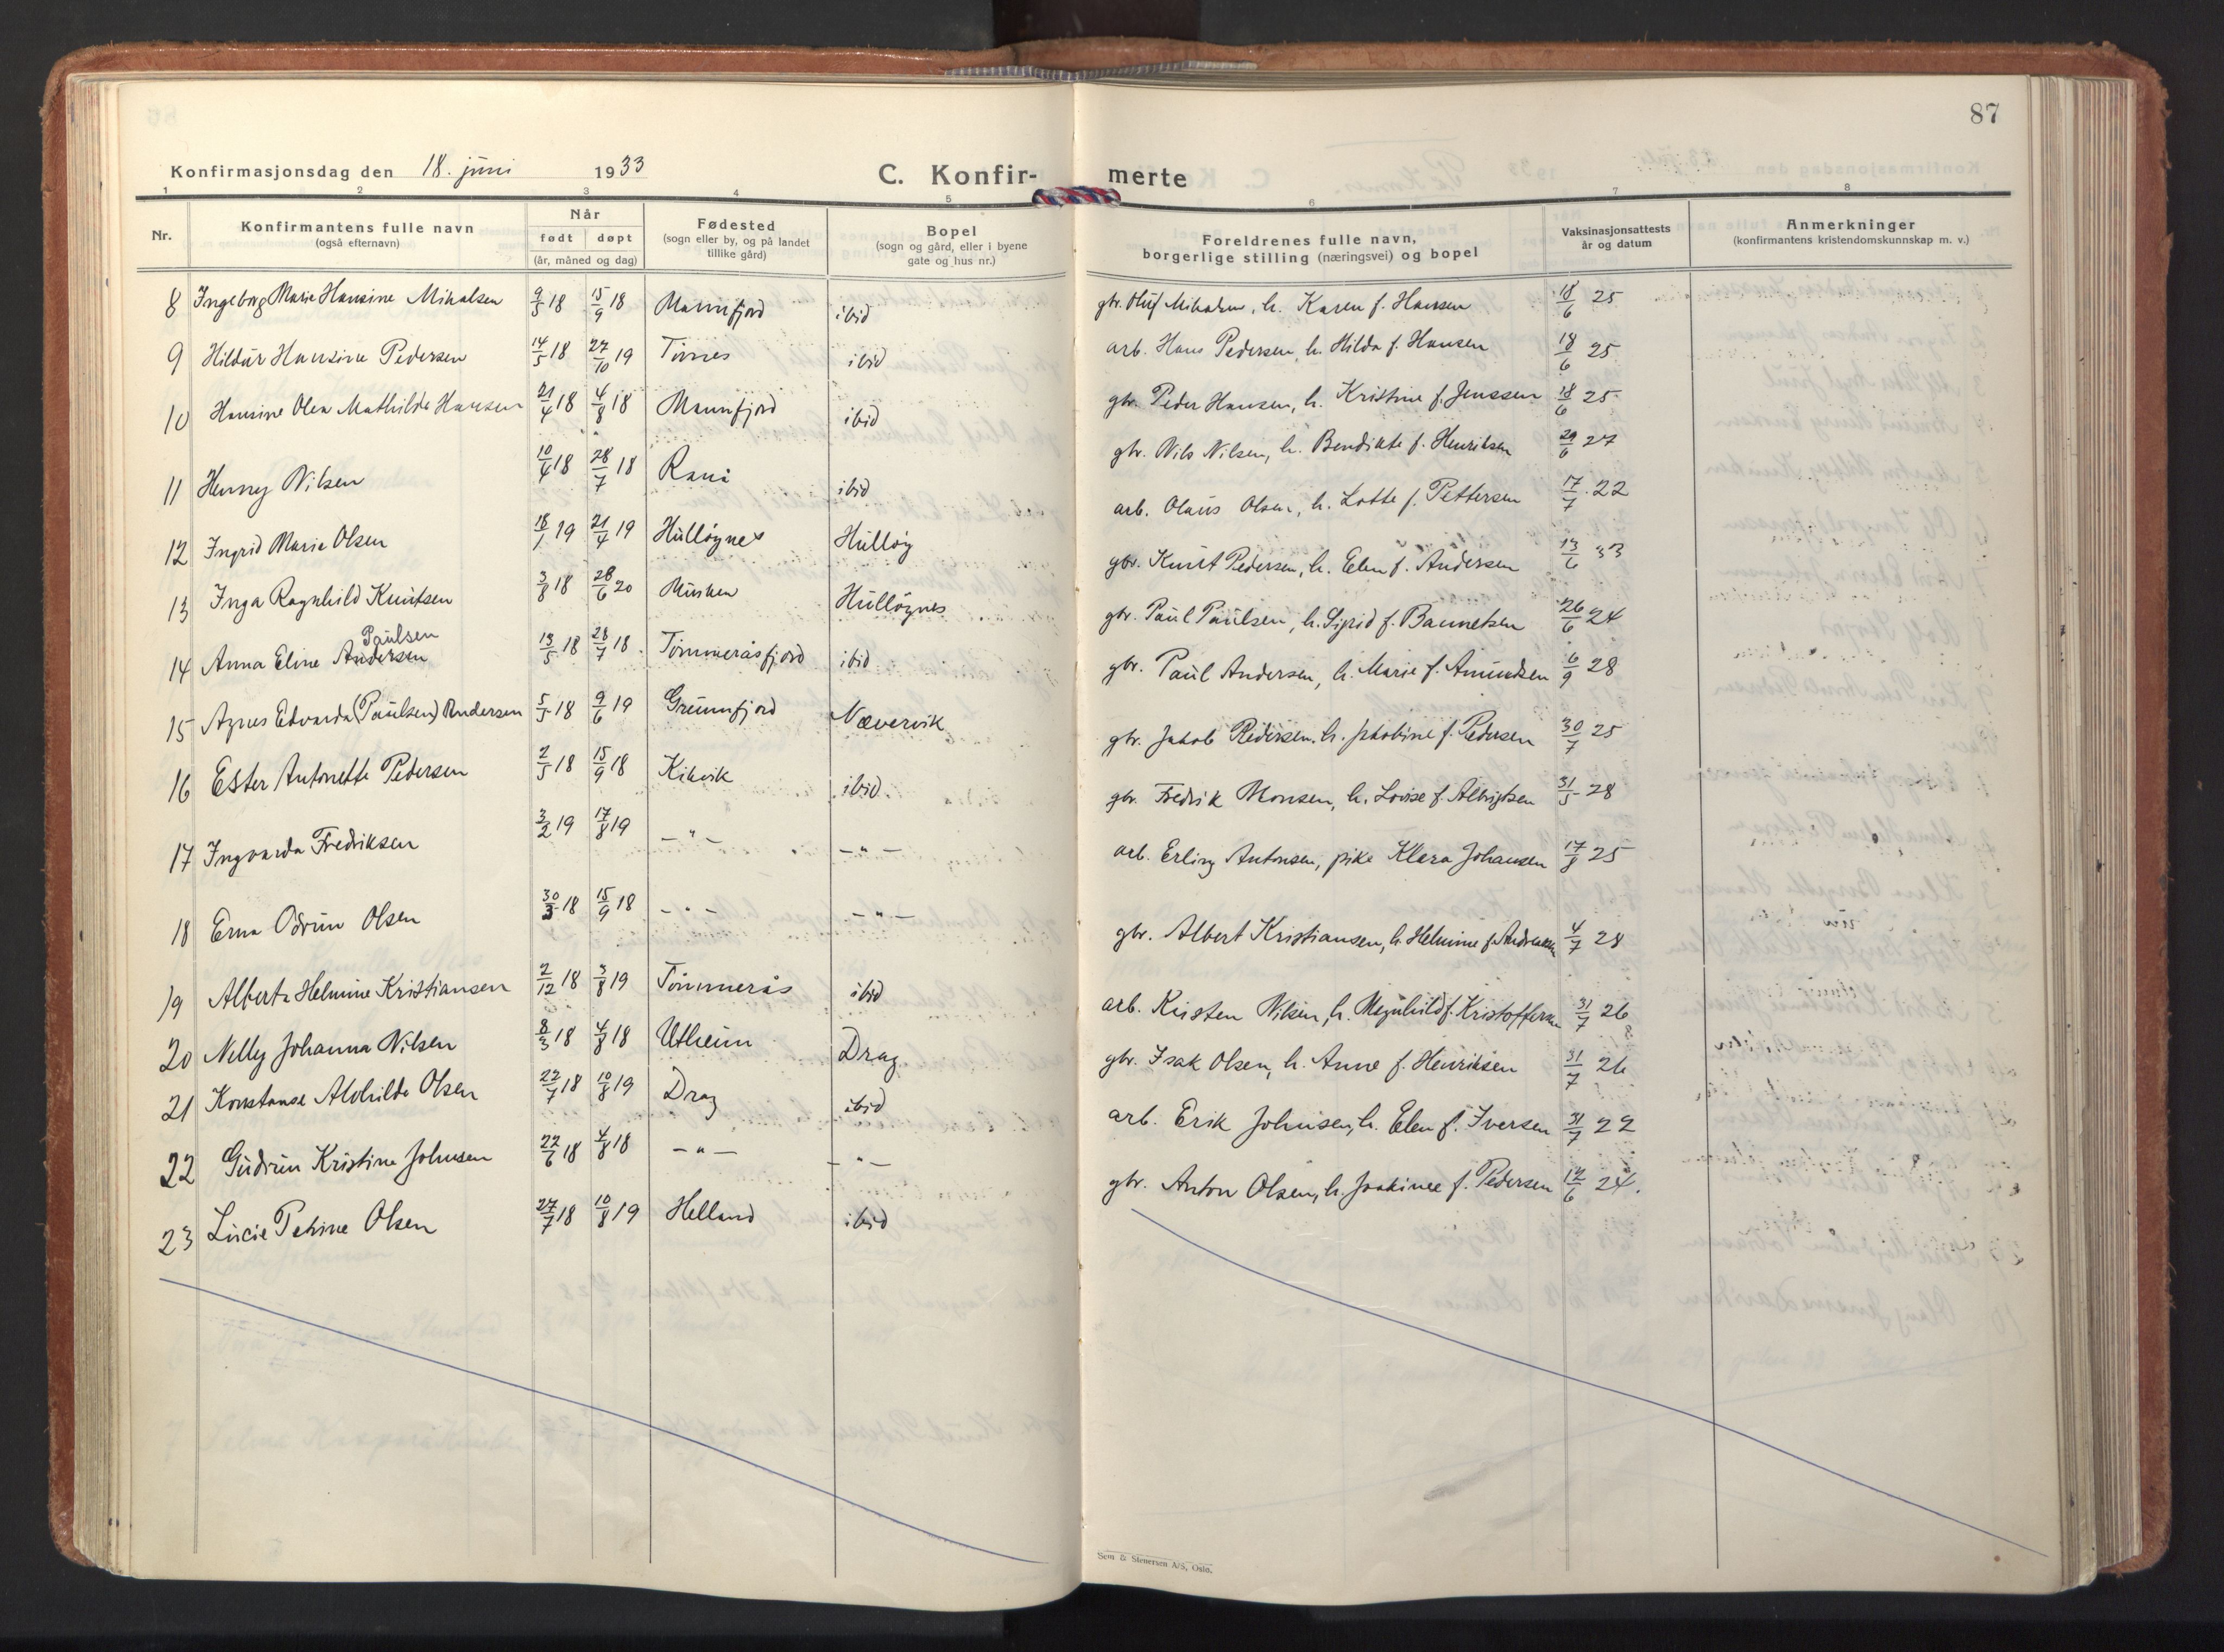 87
Konfirmasjonsdag den 18. juni 1933
C. Konfirmerte
1 2 3 4 5 6 7 8
Nr.
Konfirmantens fulle navn
(også efternavn)
Når
født døpt
(år, måned og dag)
Fødested
(sogn eller by, og på landet
tillike gård)
Bopel
(sogn og gård, eller i byene
gate og hus nr.)
Foreldrenes fulle navn,
borgerlige stilling (næringsvei) og bopel
Vaksinasjonsattests
år og datum
Anmerkninger
(konfirmantens kristendomskunnskap m. v.)
8 Ingeborg Marie Hansine Mikalsen 9/5 18 15/9 18 Mannfjord ibid gbr. Oluf Mikalsen, h. Karen f. Hansen 18/6 25
9 Hildur Hansine Pedersen 14/5 18 27/10 19 ibid arb. Hans Pedersen, h. Hilda f. Hansen 18/6 25
10 Hansine Olea Mathilde Hansen 21/4 18 4/8 18 Mannfjord ibid gbr. Peder Hansen, h. Kristine f. Jenssen 18/6 25
11 Henry Nilsen 10/4 18 28/7 18 ibid gbr. Nils Nilsen, h. Bendikte f. Henriksen 29/6 27
12 Ingrid Marie Olsen 18/1 19 21/4 19 Hulløynes Hulløy arb. Olaus Olsen, h. Lotte f. Pettersen 17/7 22
13 Inga Ragnhild Knutsen 3/8 18 28/6 20 Musken Hulløynes gbr. Knut Pedersen, h. Elen f. Andersen 13/6 33
Paulsen
14 Anna Eline Andersen 13/5 18 28/7 18 Tømmeråsfjord ibid gbr. Paul Paulsen, h. Sigrid f. 26/6 24
15 Agnes Edvarda (Paulsen) Andersen 5/5 18 9/6 19 Grunnfjord Nævervik gbr. Paul Andersen, h. Marie f. Amundsen 6/9 28
16 Ester Antonette Pedersen 2/5 18 15/9 18 Kikvik ibid gbr. Jakob Pedersen, h. Jakobine f. Pedersen 30/7 25
17 Ingvarda Fredriksen 3/2 19 17/8 19 -"- -"- gbr. Fredrik Monsen, h. Lovise f. Albrigtsen 31/5 28
18 Erna Odrun Olsen 30/3 18 15/9 18 -"- -"- arb. Erling Antonsen, pike Klara Johansen 17/8 25
19 Alberta Helmine Kristiansen 2/12 18 3/8 19 Tømmerås ibid gbr. Albert Kristiansen, h. Helmine f. Andreassen 4/7 28
20 Nelly Johanna Nilsen 8/3 18 4/8 18 Utheim Drag arb. Kristen Nilsen, h. Magnhild f. Kristoffersen 31/7 26
21 Konstanse Alvhilde Olsen 22/7 18 10/8 19 Drag ibid gbr. Isak Olsen, h. Anne f. Henriksen 31/7 26
22 Gudrun Kristine Johnsen 22/6 18 4/8 18 -"- -"- arb. Erik Johnsen, h. Elen f. Iversen 31/7 22
23 Lucie Petrine Olsen 27/7 18 10/8 19 Helland ibid gbr. Anton Olsen, h. Joakinee f. Pedersen 12/6 24.
Sem & Stenersen A/S, Oslo.